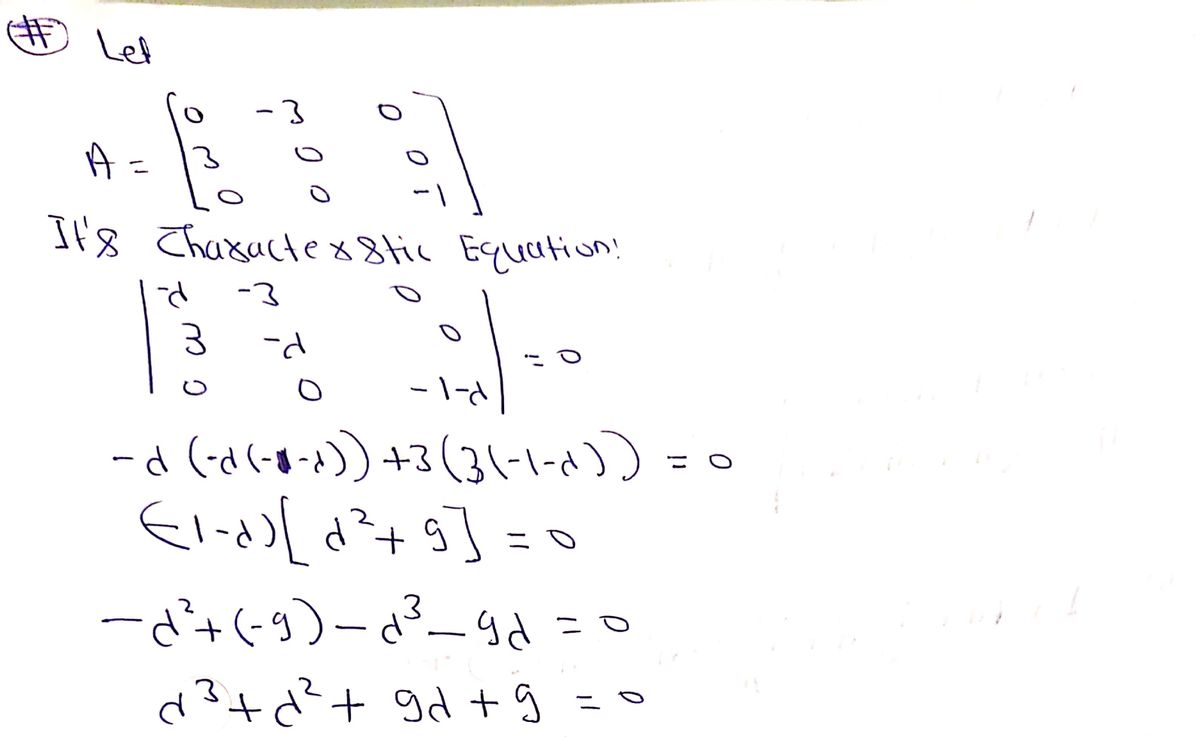 # Let
A = [0 -3 0
3 0 0
0 0 -1]
It's Characterstic Equation:
|-d -3 0
3 -d 0
0 0 -1-d| = 0
-d (-d(-1-d)) +3(3(-1-d)) = 0
(-1-d)[d²+9] = 0
-d²+(-9)-d³-9d = 0
d³+d²+9d+9 = 0